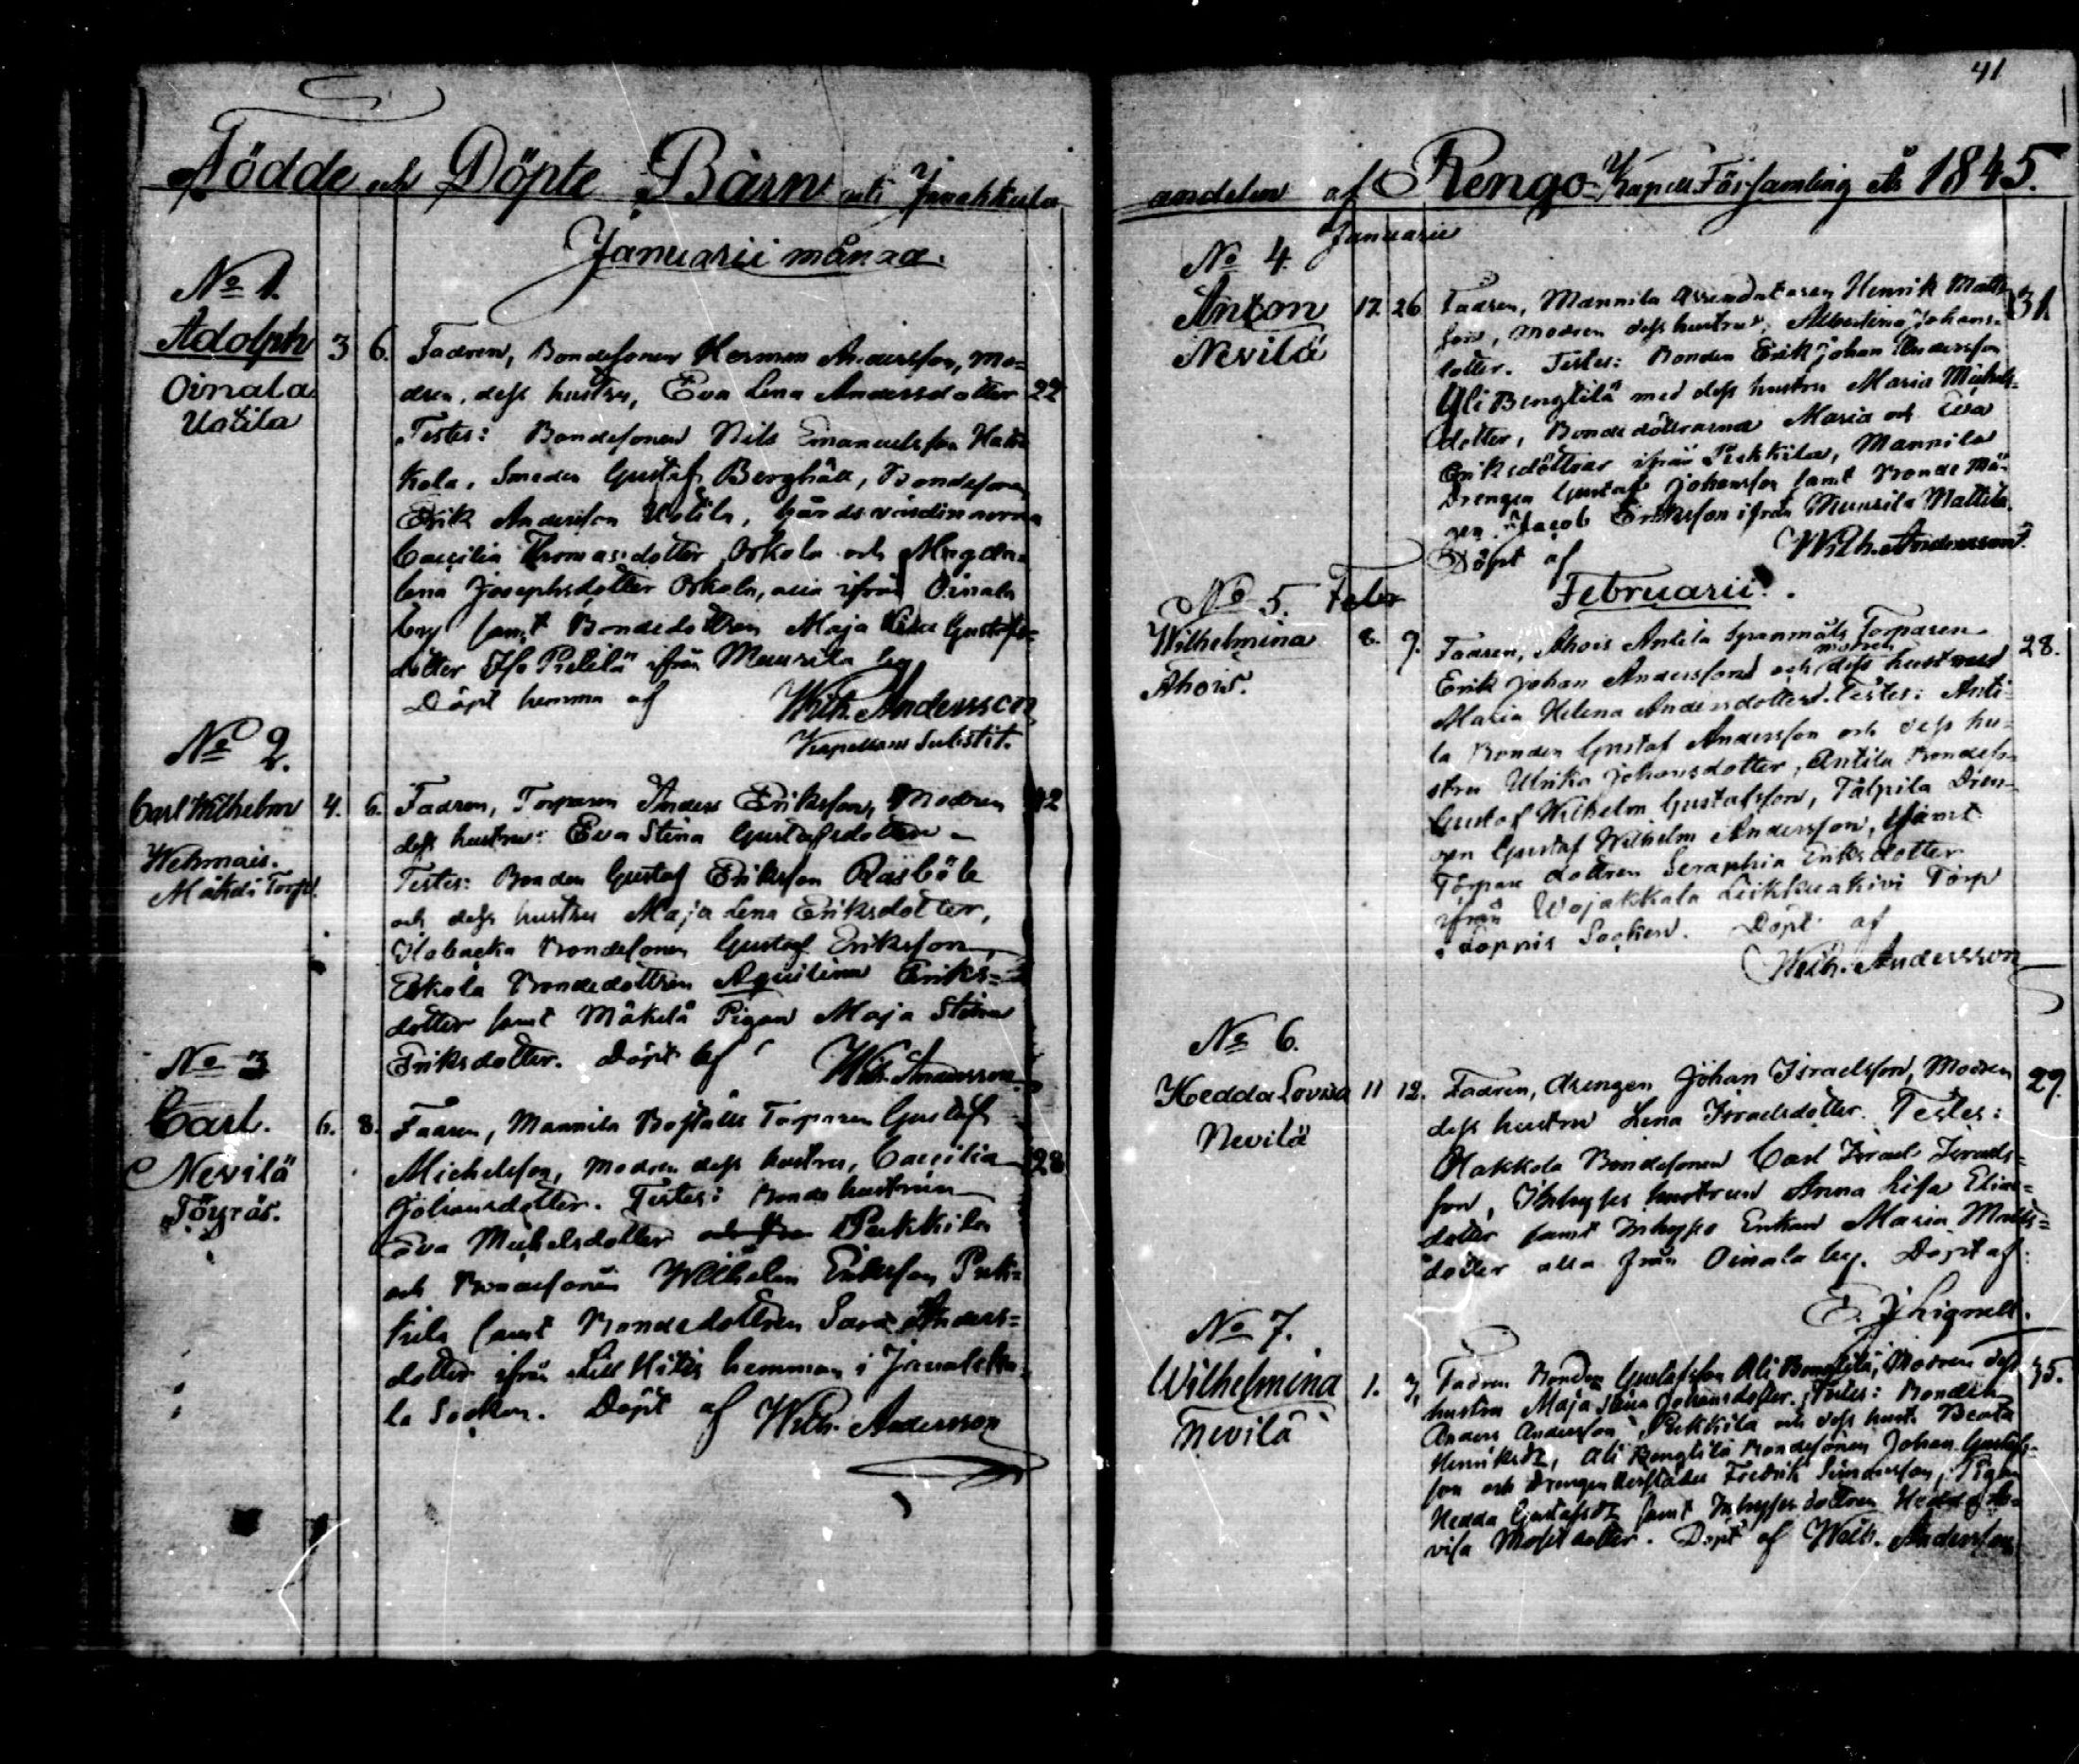 41
Födde och Döpte Barn uti Janakkala
andelen af Rengo Kapell Församling År 1845.
Januarii månad.
No 1.
Adolph 3 6.
Oinala
Uotila
Fadren, Bondesonen Herman Andersson, Mo=
dren, dess hustru, Eva Lena Andersdotter 22
Testes: Bondesonen Nils Emanuelsson
kola, Smeden Gustaf Berghäll, Bondesonen
Erik Andersson Uotila, Gårdsvärdinnorna
Caecilia Thomasdotter Oskola och Magda=
lena Josephsdotter Oskola, alla ifrån Oinala
by samt Bondedottren Maja Lisa Gustafs=
dotter Iso Pietilä ifrån Muurila by
Döpt hemma af Wilh. Andersson
Kapellans Substit.
No 2.
Carl Wilhelm 4. 6.
Wehmais.
Mäkelä Torp.
Fadren, Torparen Anders Eriksson, Modren 42
dess hustru: Eva Stina Gustafsdotter
Testes: Bonden Gustaf Eriksson Räsböle
och dess hustru Maja Lena Eriksdotter,
Bondesonen Gustaf Eriksson,
Eskola Bondedottren Aqvilina Eriks=
dotter samt Mäkelä Pigan Maja Stina
Eriksdotter. Döpt af Wilh. Andersson
No 3
Carl. 6. 8.
Nevilä
Töyräs.
Fadren, Mannila Boställes Torparen Gustaf
Michelsson, Modren dess hustru, Caecilia 28
Johansdotter. Testes: Bonde hustrun
Eva Michelsdotter Pukkila
och Bondesonen Wilhelm Eriksson Puk=
kila samt Bondedottren Sara Anders=
dotter ifrån Lill Hitis hemman i Janakka=
la Socken. Döpt af Wilh. Andersson
Januarii
No 4.
Anton 17. 26
Nevilä
Fadren, Mannila Arrendatoren Henrik Matts= 31
son, Modren dess hustru, Albertina Johans=
dotter. Testes: Bonden Erik Johan Andersson
Yli Bengtilä med dess hustru Maria Michels=
dotter, Bondedöttrarna Maria och Eva
Eriksdöttrar ifrån Pukkila, Mannila
Drengen Gustaf Johansson samt Bonde Må=
gen Jacob Eriksson ifrån Muurila Mattila.
Döpt af Wilh. Andersson.
No 5. Febr
Februarii.
Wilhelmina 8. 9.
Ahois.
Fadren, Ahois Antila Spanmåls Torparen 28.
modren
Erik Johan Andersson och dess hustru
Maria Helena Andersdotter. Testes: Anti=
la Bonden Gustaf Andersson och dess hu=
stru Ulrika Johansdotter, Antila Bondes.
Gustaf Wilhelm Gustafsson, Talpila Dren=
gen Gustaf Wilhelm Andersson, samt
Torpare dottren Seraphia Eriksdotter
ifrån Wojakkala Torp
i Loppis Socken. Döpt af
Wilh. Andersson
No 6.
Hedda Lovisa 11 12.
Nevilä
Fadren, drengen Johan Israelsson, Modren 29.
dess hustru Lena Israelsdotter. Testes:
Hakkola Bondesonen Carl Israel Israels=
son, Inhyses hustrun Anna Lisa Elias=
dotter samt Inhyses Enkan Maria Matts=
dotter alla från Oinala by. Döpt af:
E. J. Lignell.
No 7.
Wilhelmina 1. 3.
Nevilä
Fadren Bonden Gustafsson Ali Bengtilä, Modren dess 35.
hustru Maja Stina Johansdotter. Testes: Bonden
Anders Andersson Pukkila och dess hustr. Beata
Henriksdr, Ali Bengtilä Bondesonen Johan Gustafs=
son och Drengen Fredrik Simonsson, Pigan
Hedda Gustafsdr samt Inhyses dottren Hedda Lo=
visa Mosesdotter. Döpt af Wilh. Andersson